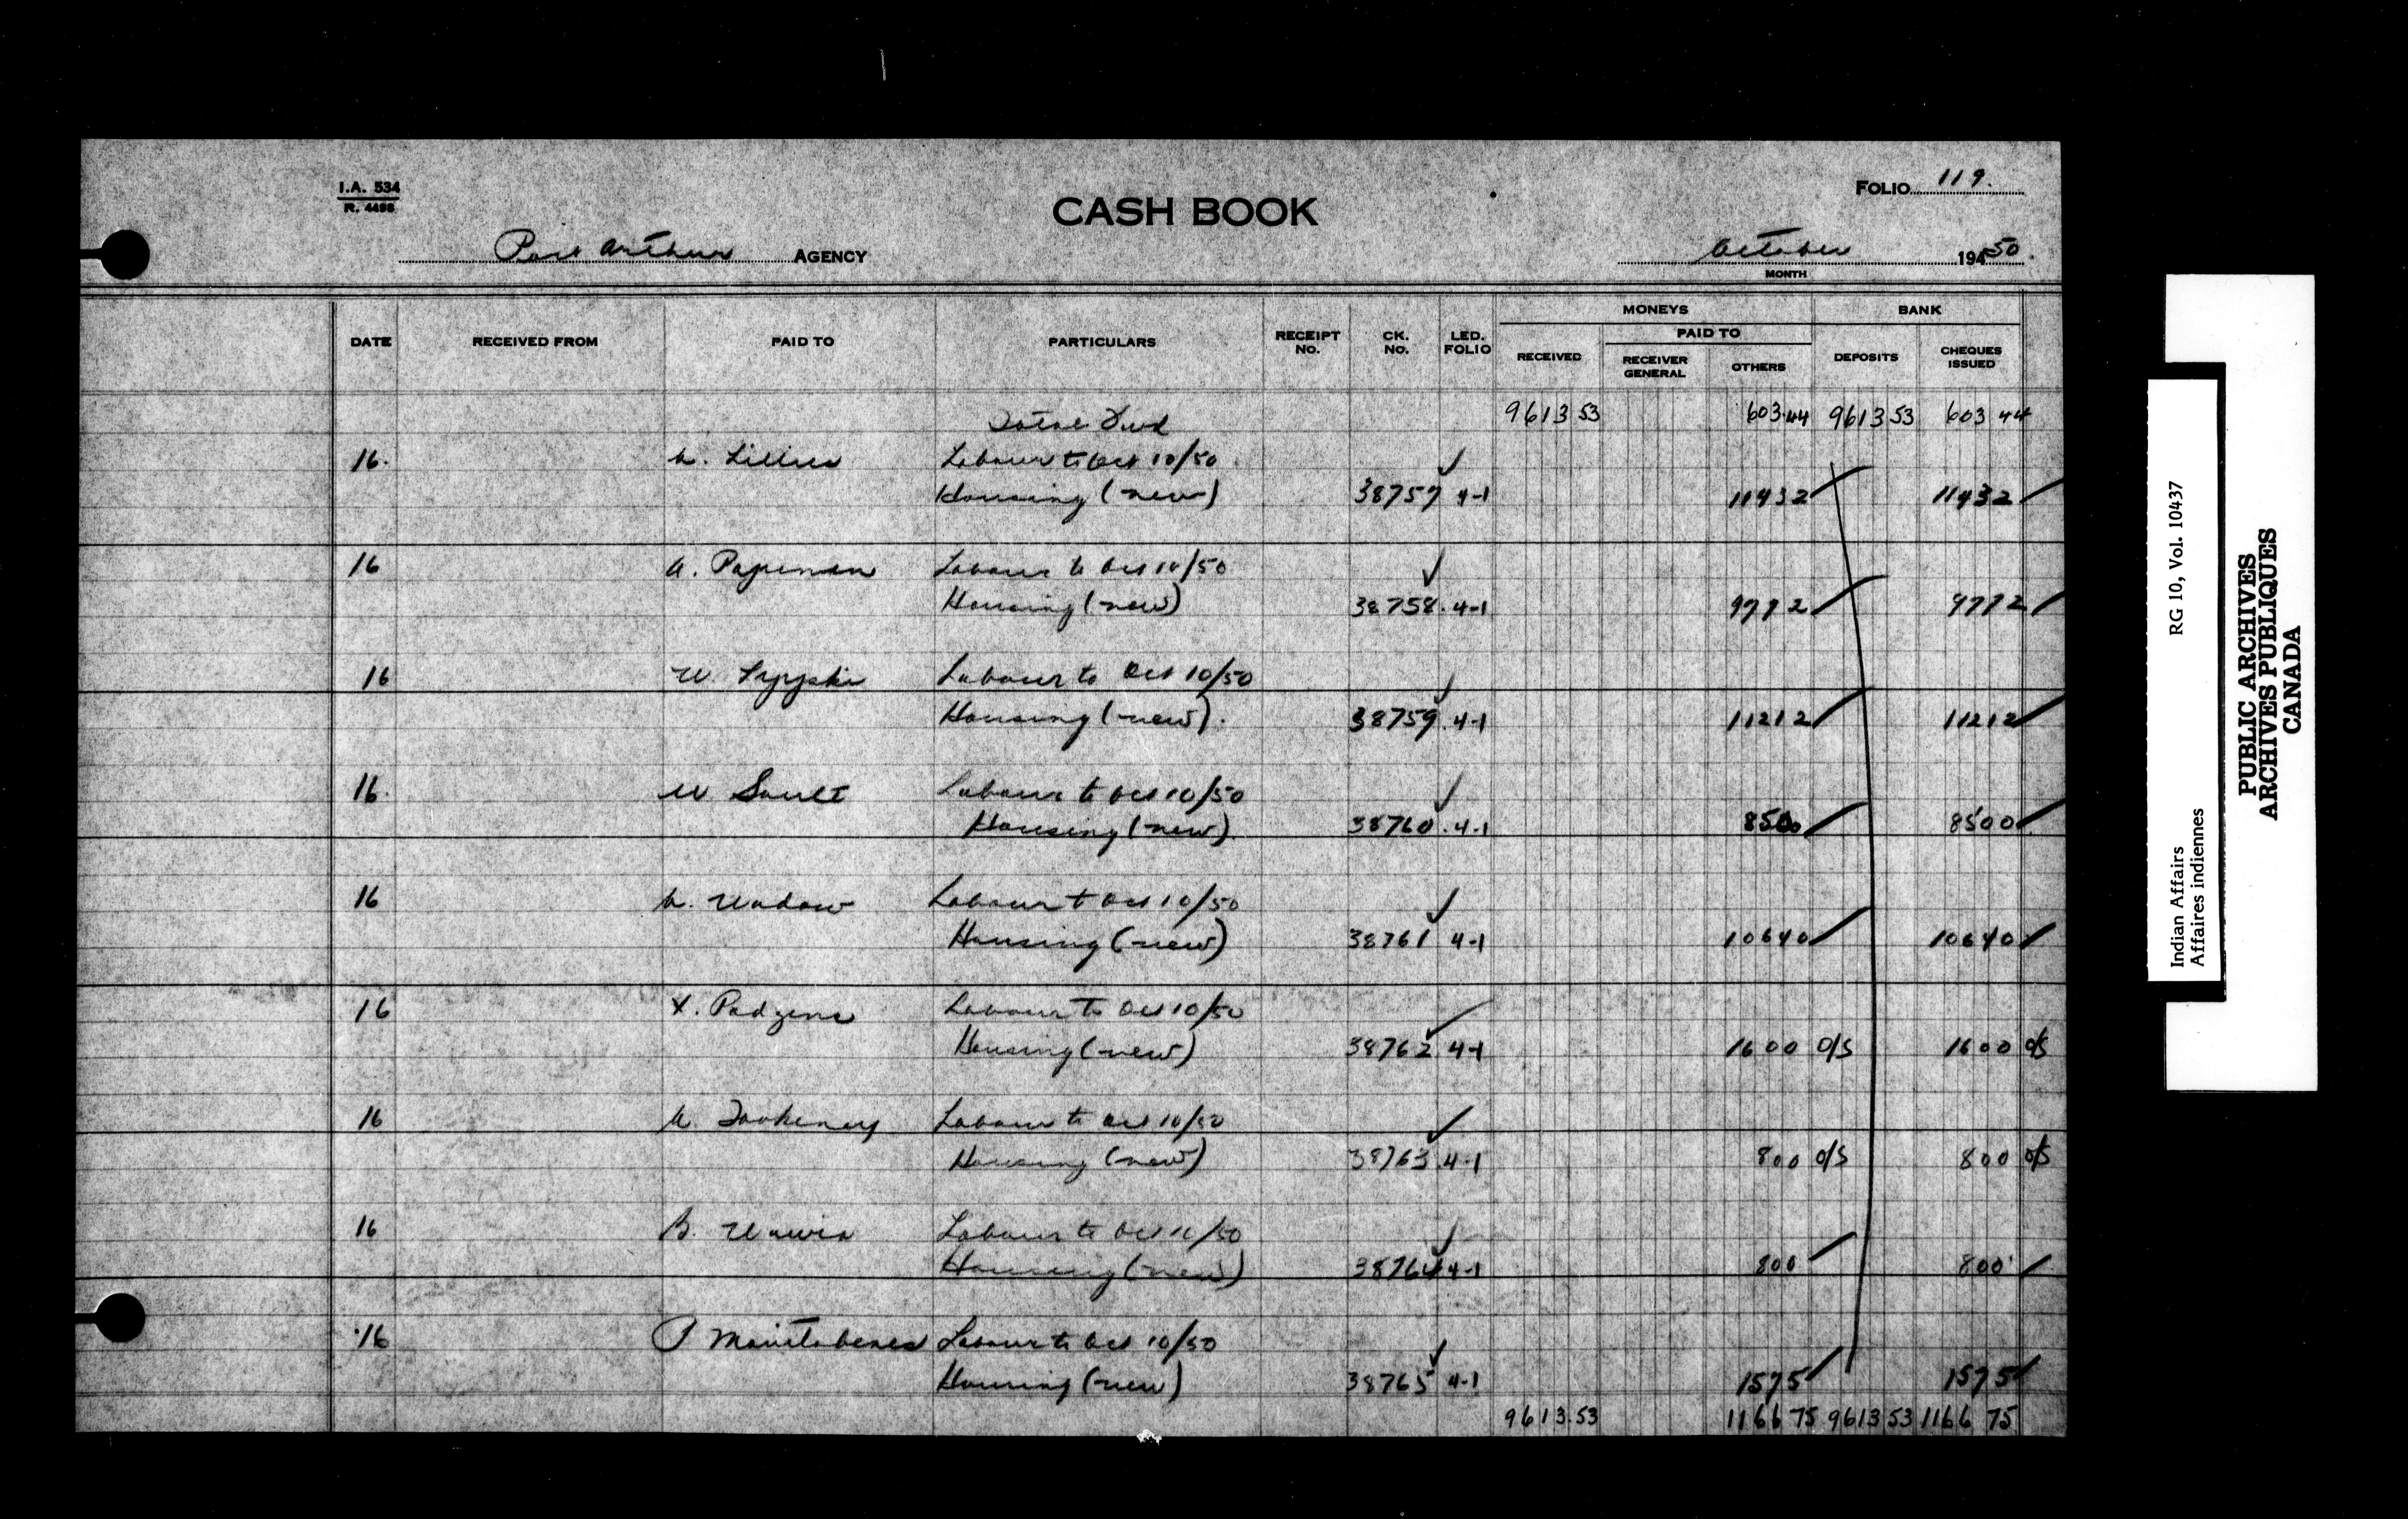 I.A. 534
R. 4498
FOLIO 119.
CASH BOOK
Port Arthur AGENCY
October 19450.
MONTH
DATE RECEIVED FROM PAID TO PARTICULARS RECEIPT No. CK. No. LED. FOLIO MONEYS RECEIVED PAID TO RECEIVER GENERAL OTHERS BANK DEPOSITS CHEQUES ISSUED
Total Fwd 9613 53 603.44 9613 53 603 44
16. Labour to Oct 10/50
Housing (new) 38757 4-1 114 32 114 32
16 Labour to Oct 10/50
Housing (new) 38758. 4-1 97 72 97 72
16 W. Labour to Oct 10/50
Housing (new). 38759. 4-1 112 12 112 12
16. W Sault Labour to Oct 10/50
Housing (new). 38760. 4-1 85 00 85 00
16 Labour to Oct 10/50
Housing (new) 38761 4-1 106 40 106 40
16 X. Padzena Labour to Oct 10/50
Housing (new) 38762 4-1 16 00 O/S 16 00 O/S
16 Labour to Oct 10/50
Housing (new) 38763 4-1 8 00 O/S 8 00 O/S
16 B. Labour to Oct 10/50
Housing (new) 38764 4-1 8 00 8 00
16 P Labour to Oct 10/50
Housing (new) 38765 4-1 15 75 15 75
9613.53 1166 75 9613 53 1166 75
RG 10, Vol. 10437
Indian Affairs
Affaires indiennes
PUBLIC ARCHIVES
ARCHIVES PUBLIQUES
CANADA